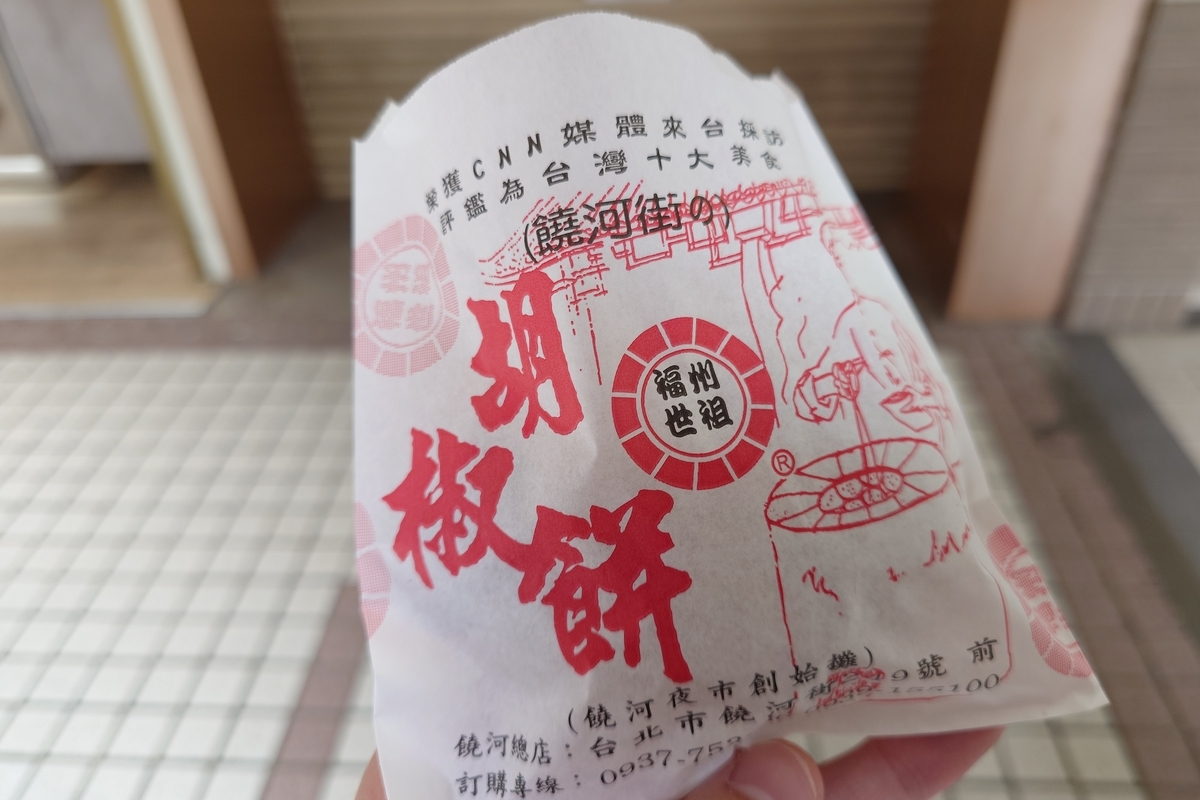 榮獲CNN媒體來台採訪
評鑑為台灣十大美食
(饒河街の)
胡椒餅
福州
世祖
®
(饒河夜市創始攤)
饒河總店：台北市饒河街 9號前
訂購專線：0937-753